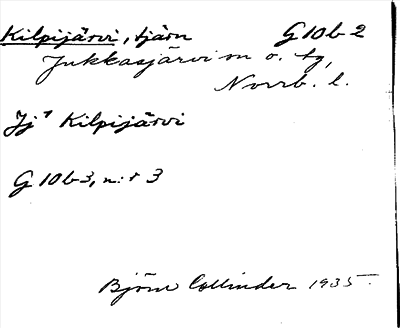 Kilpijärvi, tjärn G10b2
Jukkasjärvi sn o. tg,
Norrb. l.
Jj⁹ Kilpijärvi
G10b3, n:r 3
Björn Collinder 1935.